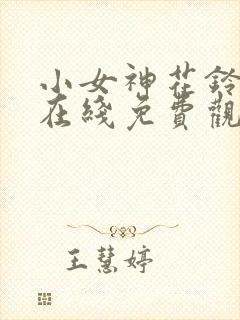 小女神花鈴
在綫免費觀
王慧婷